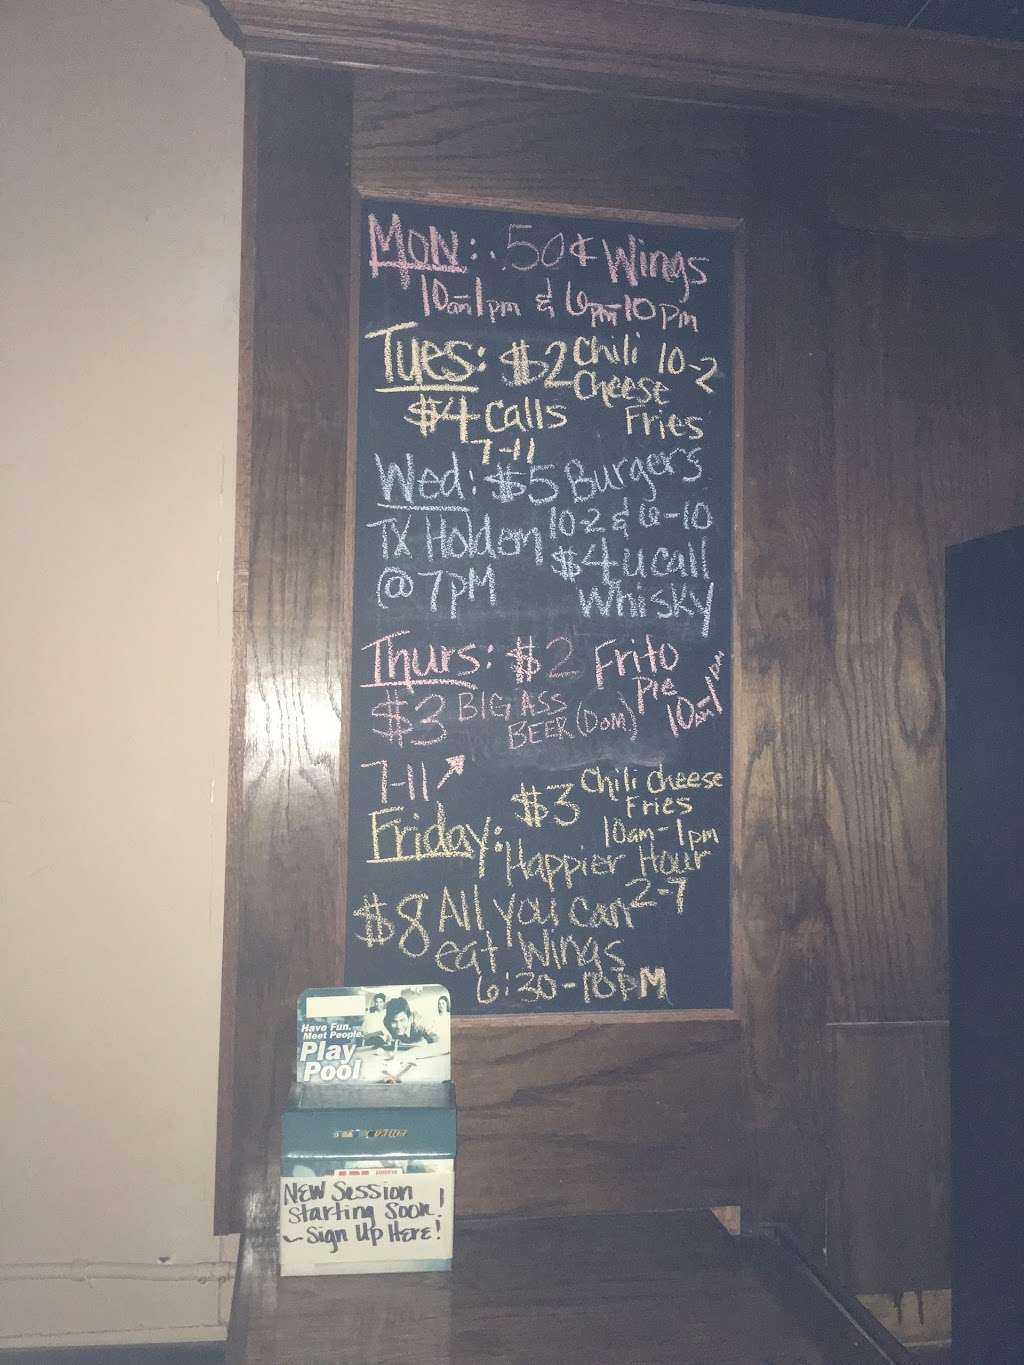 Mon: .50¢ Wings
10am-1pm & 6pm-10pm
Tues: $2 Chili 10-2
Cheese
$4 Calls Fries
7-11
Wed: $5 Burgers
TX Holdem 10-2 & 6-10
@ 7pm $4 u call
Whisky
Thurs: $2 Frito
Pie
$3 BIG ASS 10am-1pm
BEER (DOM)
7-11
$3 Chili Cheese
Fries
Friday: 10am-1pm
Happier Hour
2-7
$8 All you can
eat Wings
6:30-10pm
Have Fun.
Meet People.
Play
Pool.
New Session
Starting Soon!
~Sign Up Here!